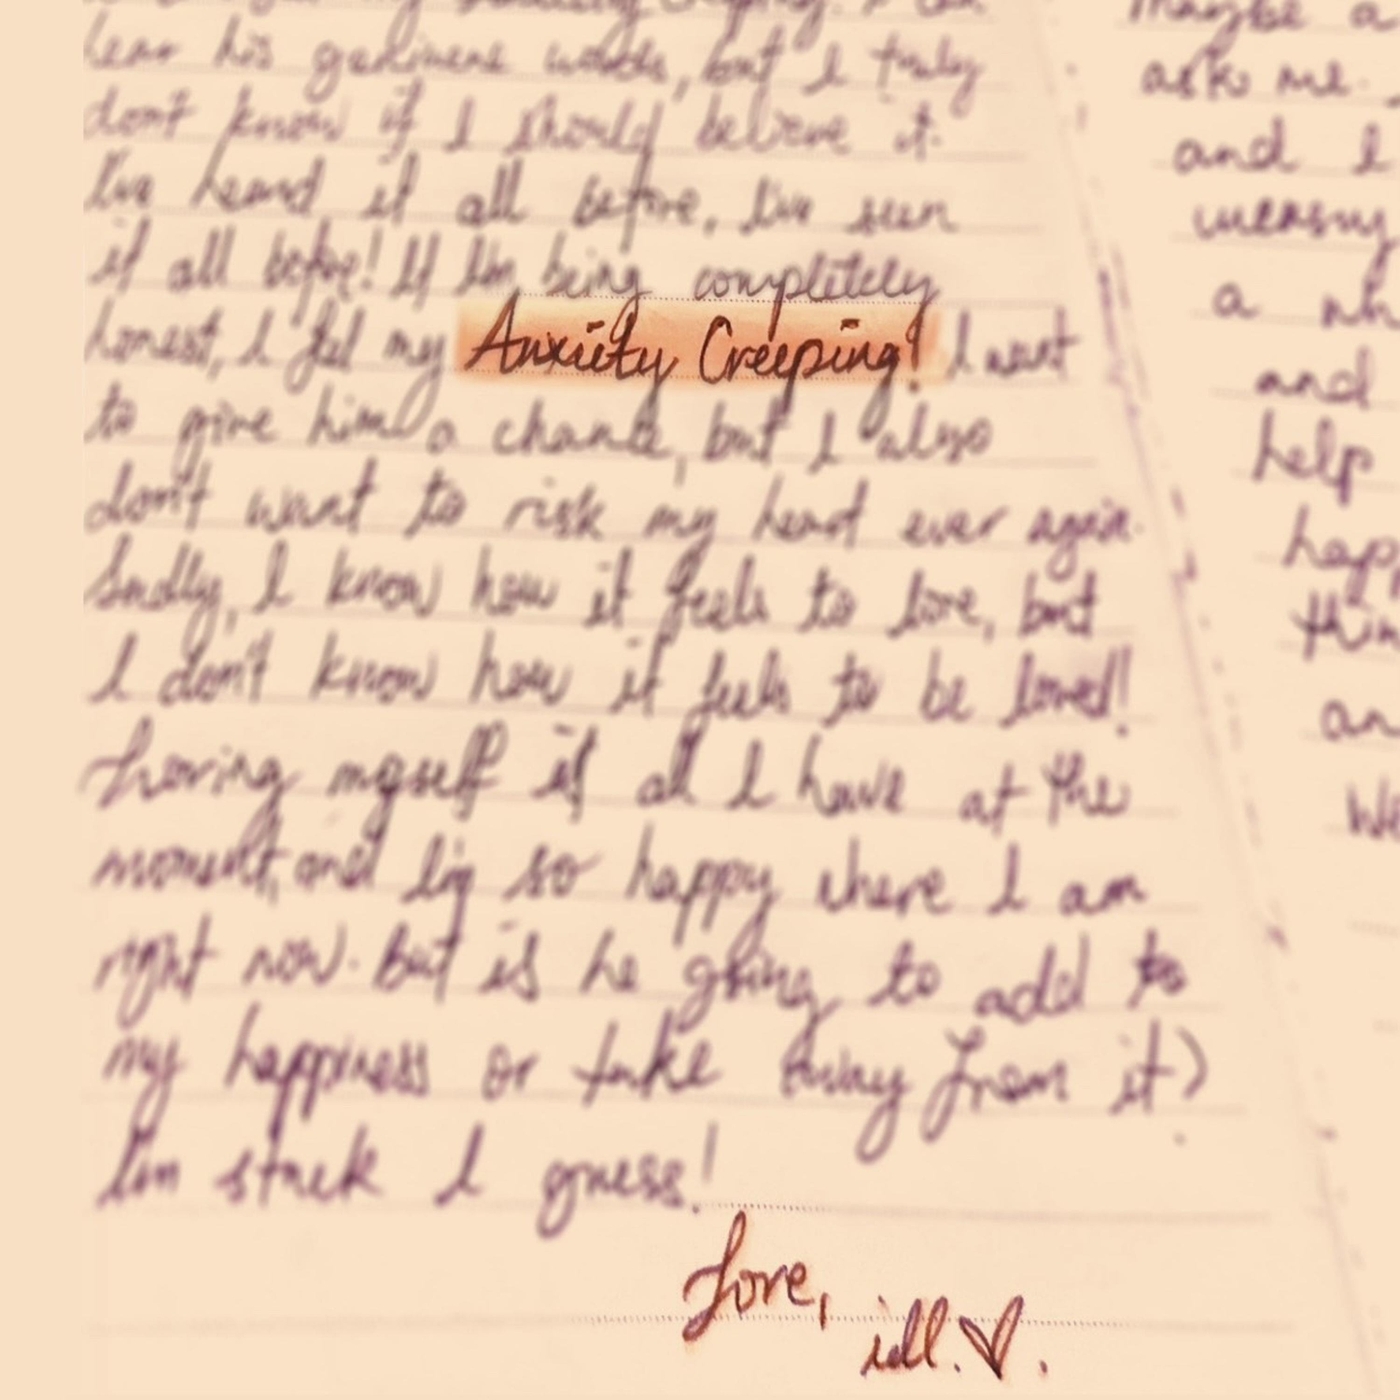 hear his genuine words, but I truly
don't know if I should believe it.
I've heard it all before, I've seen
it all before! If I'm being completely
honest, I feel my Anxiety Creeping! I want
to give him a chance, but I also
don't want to risk my heart ever again.
Sadly, I know how it feels to love, but
I don't know how it feels to be loved!
Loving myself is all I have at the
moment, and I'm so happy where I am
right now. But is he going to add to
my happiness or take away from it?
I'm stuck I guess!
Love,
ill. ♡.
Maybe a
ask me.
and I
a
and
help
an